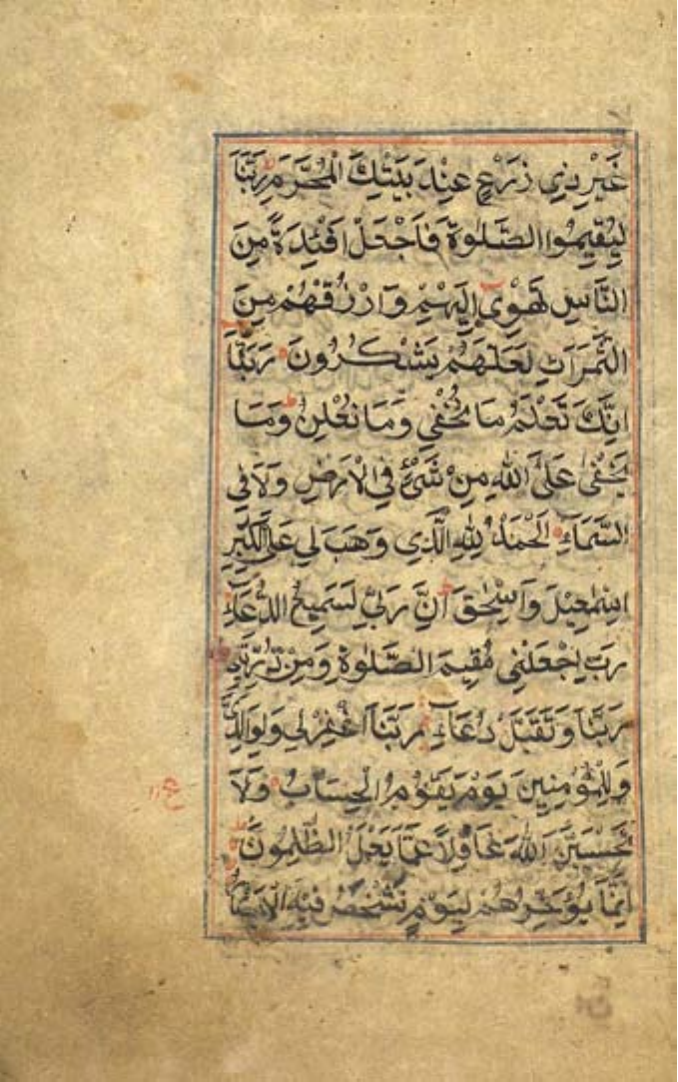 غَيْرِ ذِي زَرْعٍ عِنْدَ بَيْتِكَ الْمُحَرَّمِ رَبَّنَا
لِيُقِيمُوا الصَّلٰوةَ فَاجْعَلْ اَفْئِدَةً مِنَ
النَّاسِ تَهْوِي اِلَيْهِمْ وَارْزُقْهُمْ مِنَ
الثَّمَرَاتِ لَعَلَّهُمْ يَشْكُرُونَ رَبَّنَا
اِنَّكَ تَعْلَمُ مَا نُخْفِي وَمَا نُعْلِنُ وَمَا
يَخْفٰى عَلَى اللّٰهِ مِنْ شَيْءٍ فِي الْاَرْضِ وَلَا فِي
السَّمَاءِ اَلْحَمْدُ لِلّٰهِ الَّذِي وَهَبَ لِي عَلَى الْكِبَرِ
اِسْمٰعِيلَ وَاِسْحٰقَ اِنَّ رَبِّي لَسَمِيعُ الدُّعَاءِ
رَبِّ اجْعَلْنِي مُقِيمَ الصَّلٰوةِ وَمِنْ ذُرِّيَّتِي
رَبَّنَا وَتَقَبَّلْ دُعَاءِ رَبَّنَا اغْفِرْ لِي وَلِوَالِدَيَّ
وَلِلْمُؤْمِنِينَ يَوْمَ يَقُومُ الْحِسَابُ وَلَا
تَحْسَبَنَّ اللّٰهَ غَافِلًا عَمَّا يَعْمَلُ الظّٰلِمُونَ
اِنَّمَا يُؤَخِّرُهُمْ لِيَوْمٍ تَشْخَصُ فِيهِ الْاَبْصَارُ